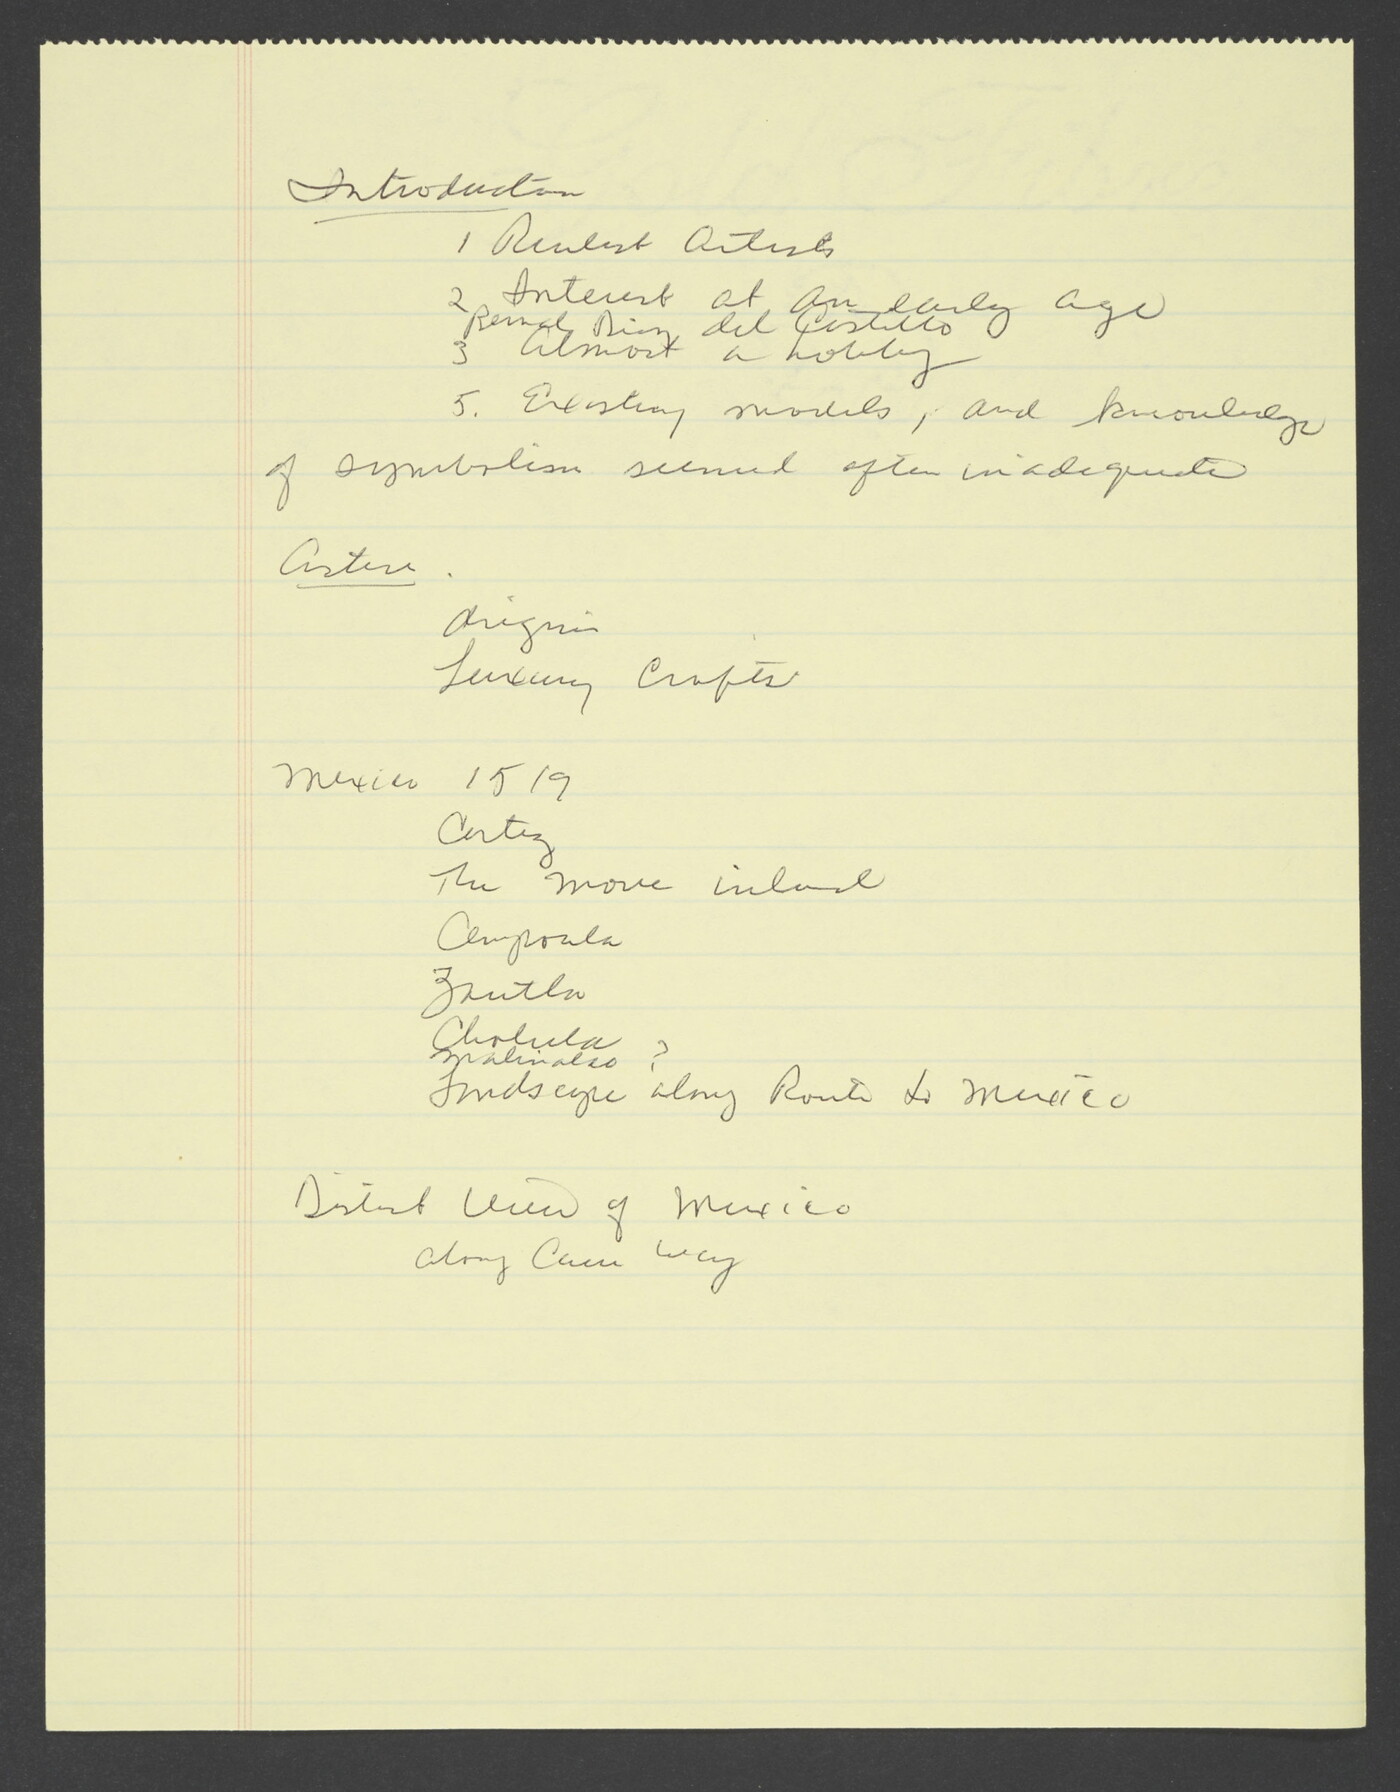 Introduction
1 Realist Artists
2 Interest at an early age
Bernal Diaz del Castillo
3 Almost a hobby
5. Existing models, and knowledge
of symbolism seemed often inadequate
Origin
Luxury Crafts
Mexico 1519
Cortez
The move inland
Cempoala
Zautla
Cholula
Malinalco ?
Landscape along Route to Mexico
Distant View of Mexico
along Causeway